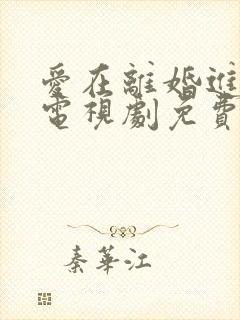 愛在離婚進
電視劇免費
秦華江